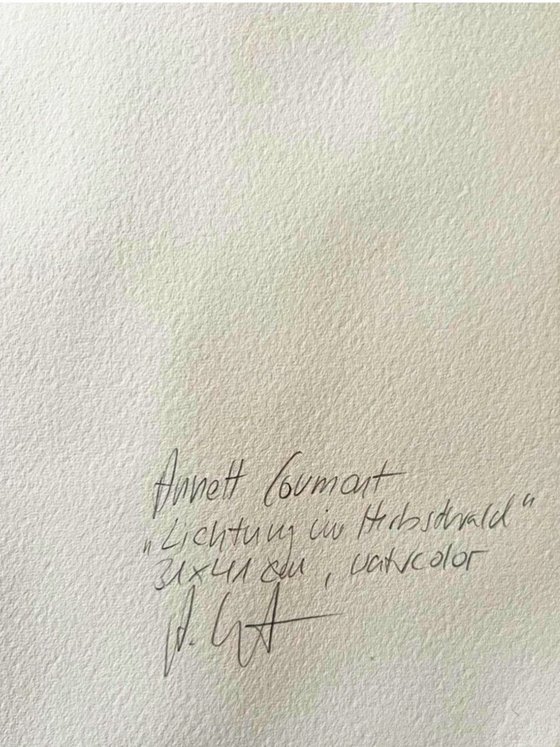 Annett Coumont
„Lichtung im Herbstwald“
31x41 cm, watercolor